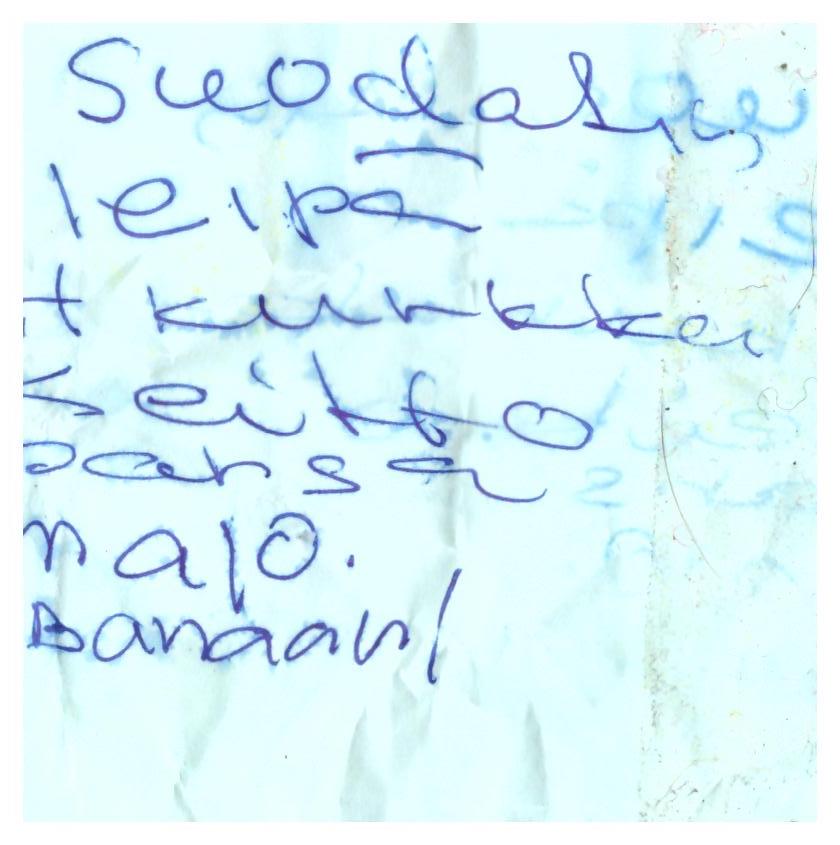 Suodatin
leipa
t kurkku
Keitto
parsa
majo.
Banaani